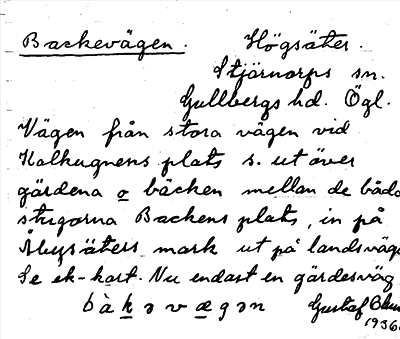 Backevägen. Högsäter.
Stjärnorps sn.
Gullbergs hd. Ögl.
Vägen från stora vägen vid
Kalkugnens plats s. ut över
gärdena o bäcken mellan de båda
stugorna Backens plats, in på
mark ut på landsväge
Se ek-kart. Nu endast en gärdesväg
bàkəvægən Gustaf
1936